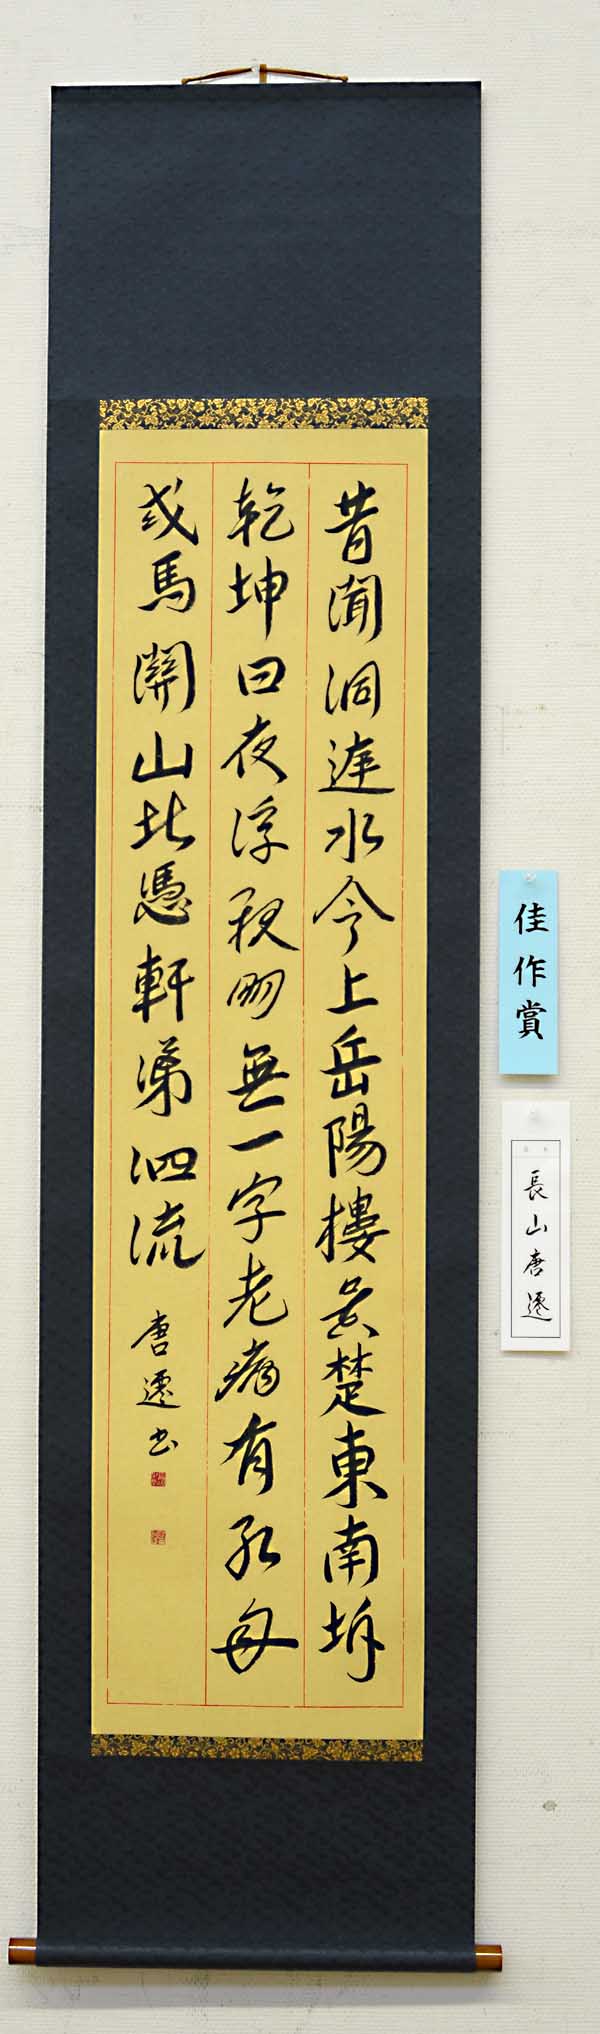 昔聞洞庭水今上岳陽樓吳楚東南坼
乾坤日夜浮親朋無一字老病有孤舟
戎馬關山北憑軒涕泗流
唐遷書
佳作賞
長山唐遷